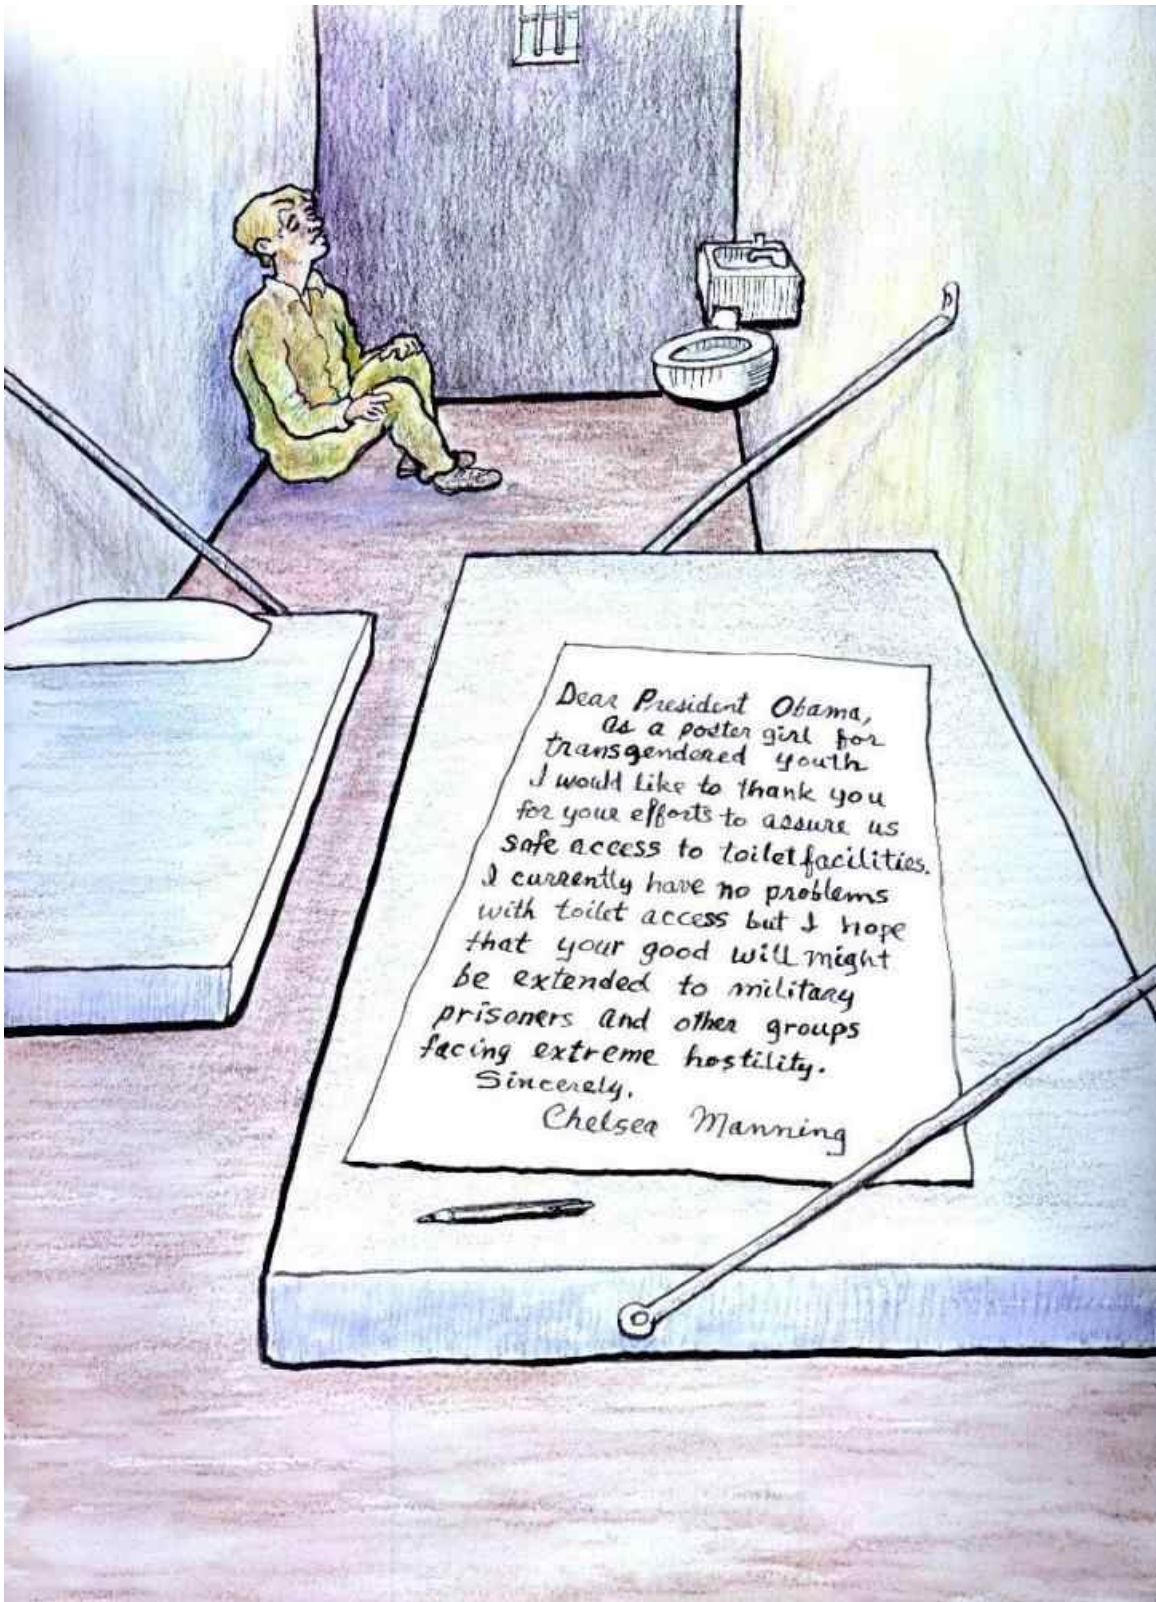 Dear President Obama,
as a poster girl for
transgendered youth
I would like to thank you
for your efforts to assure us
safe access to toilet facilities.
I currently have no problems
with toilet access but I hope
that your good will might
be extended to military
prisoners and other groups
facing extreme hostility.
Sincerely,
Chelsea Manning